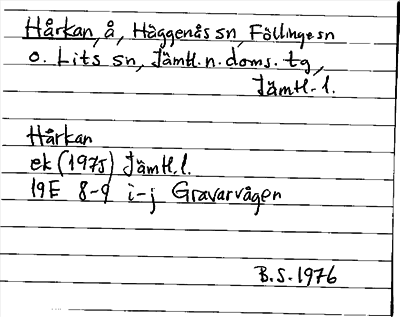 Hårkan, å, Häggenås sn, Föllinge sn
o. Lits sn, Jämtl. n. doms. tg,
Jämtl. l.
Hårkan
ek (1975) Jämtl. l.
19E 8-9 i-j Gravarvågen
B.S. 1976